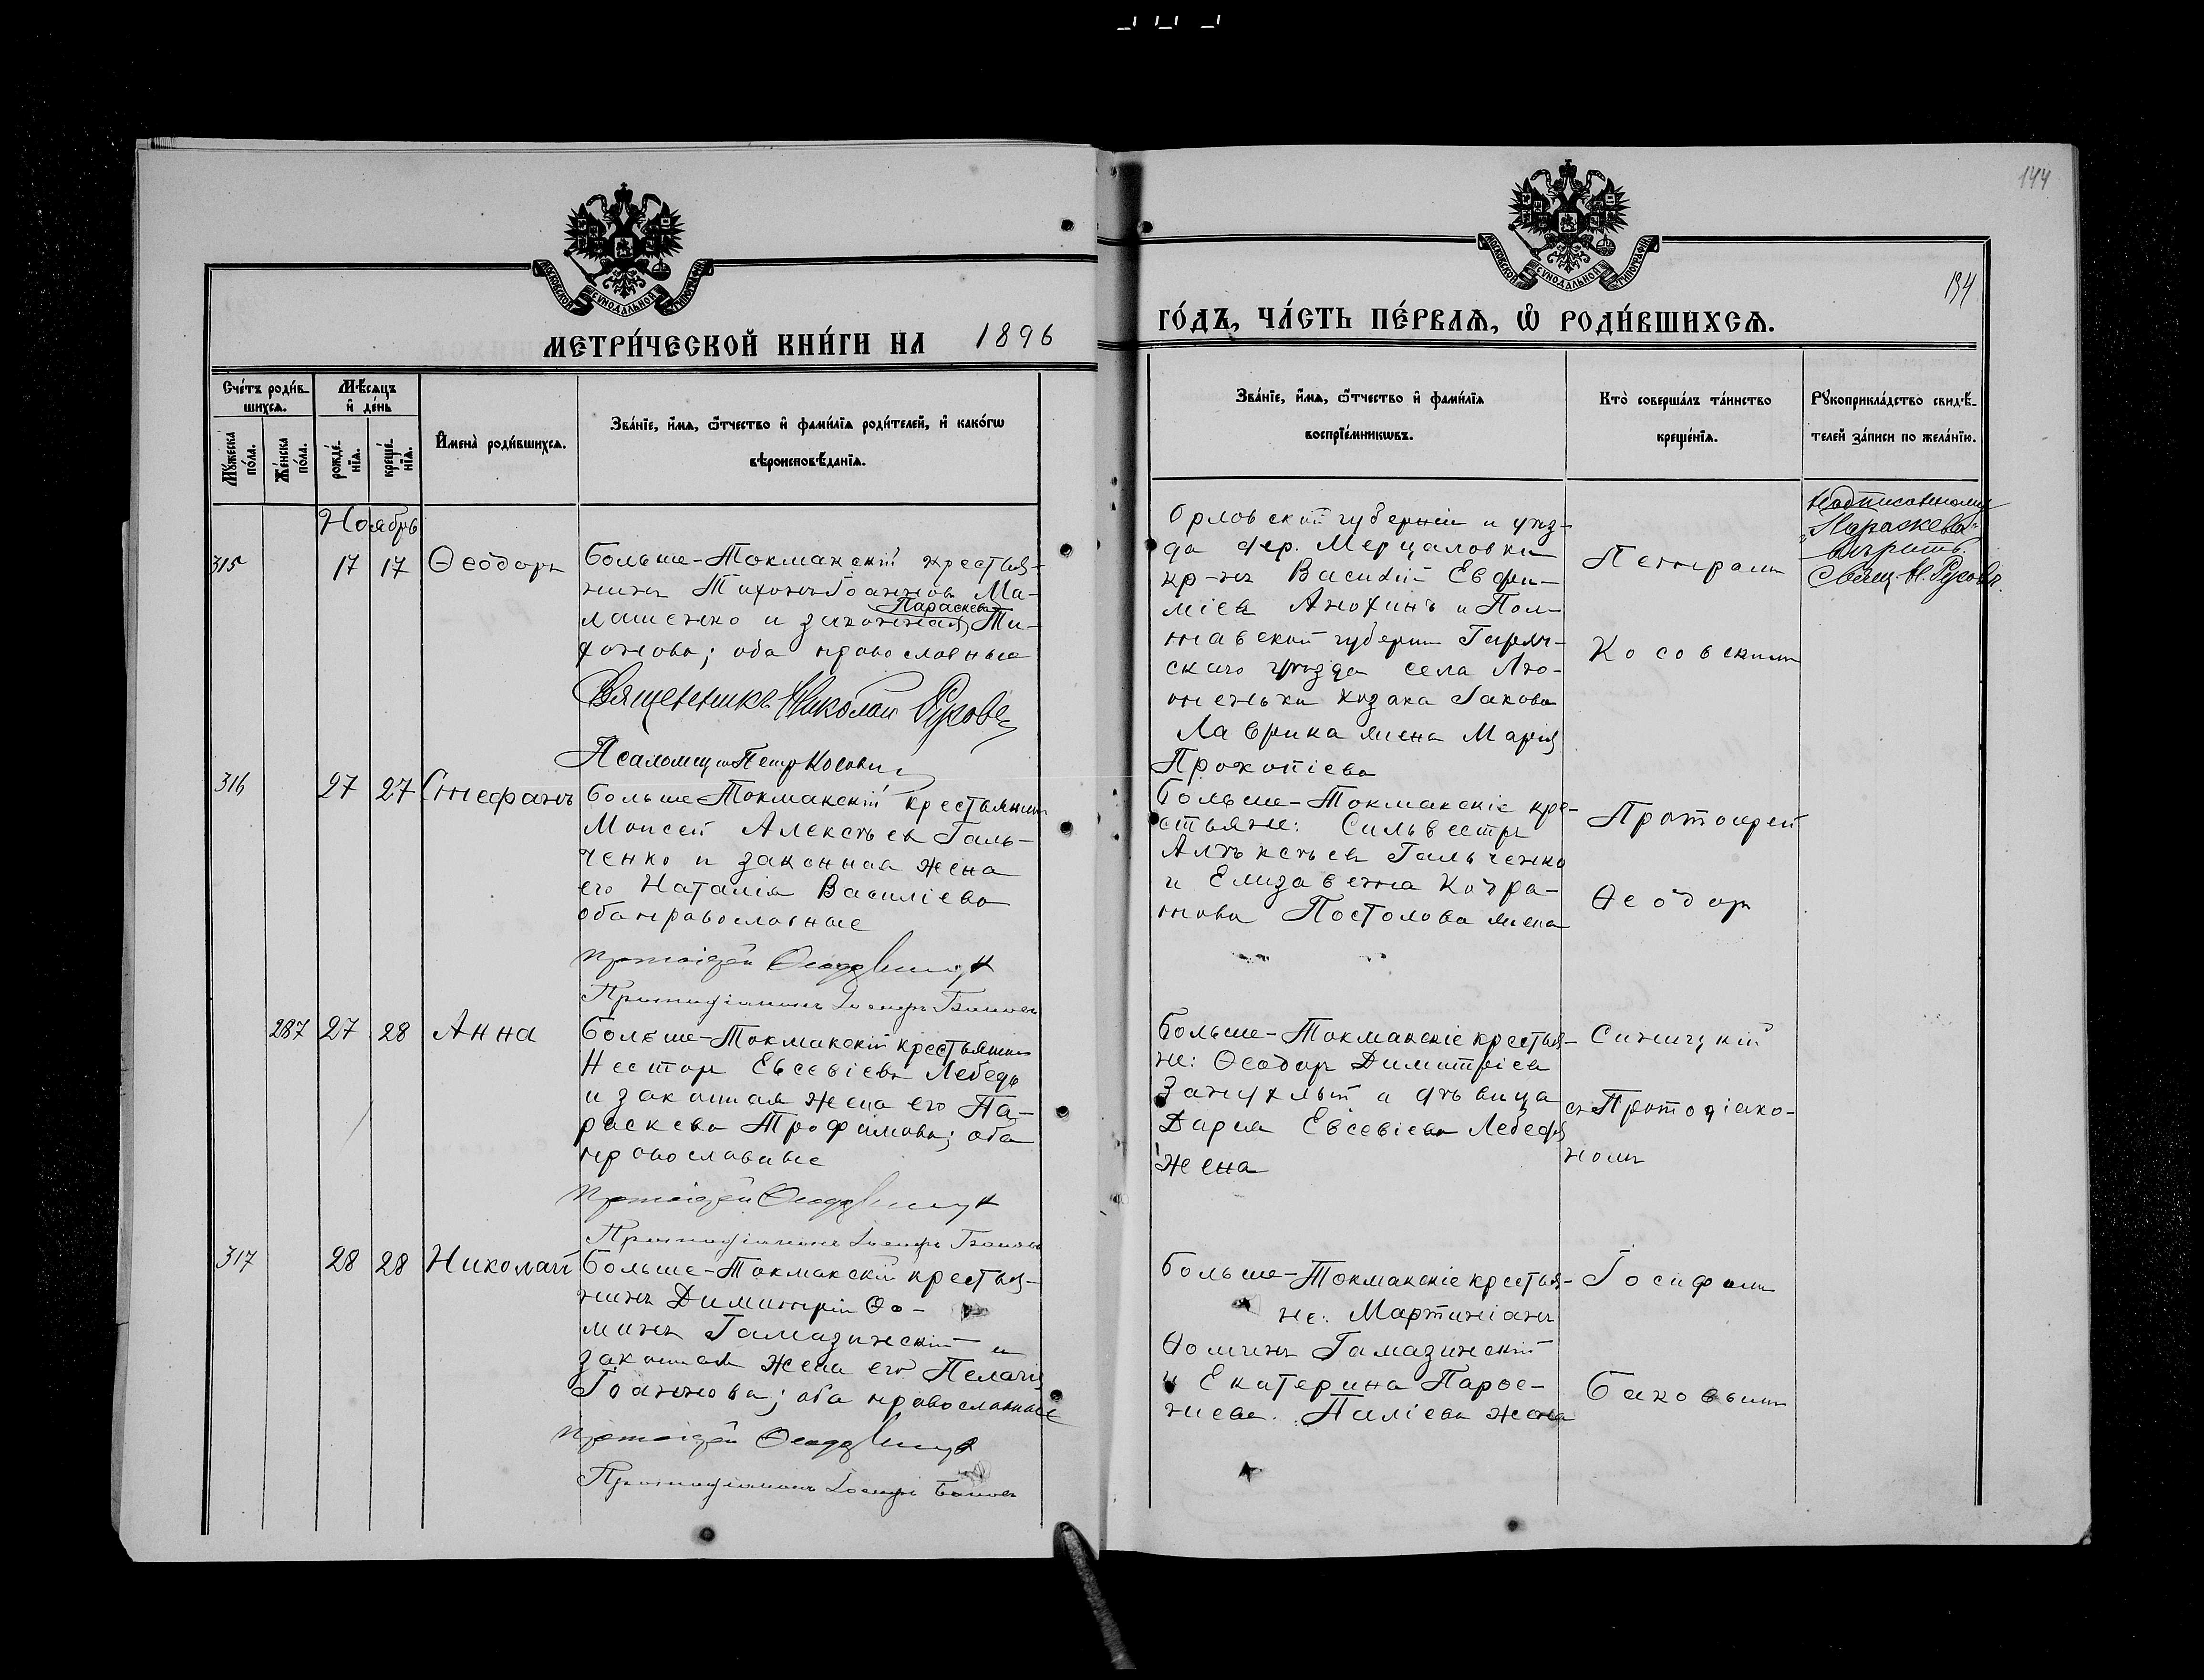 144
МОСКОВСКОЙ СУНОДАЛЬНОЙ ТИПОГРАФІИ
МОСКОВСКОЙ СУНОДАЛЬНОЙ ТИПОГРАФІИ
134
МЕТРИ́ЧЕСКОЙ КНИ́ГИ НА 1896 ГО́ДЪ, ЧА́СТЬ ПЕ́РВАѦ, Ѡ҆ РОДИ́ВШИХСѦ.
Сче́тъ роди́в-
шихсѧ.
Мꙋ́жеска по́ла.
Же́нска по́ла.
Мѣ́сѧцъ
и҆ де́нь
рожде́-
нїѧ.
креще́-
нїѧ.
И҆мена̀ роди́вшихсѧ.
Зва́нїе, и҆́мѧ, ѻ҆́тчество и҆ фами́лїѧ роди́телей, и҆ како́гѡ
вѣроисповѣ́данїѧ.
Зва́нїе, и҆́мѧ, ѻ҆́тчество и҆ фами́лїѧ
воспрїе́мникѡвъ.
Кто̀ соверша́лъ та́инство
креще́нїѧ.
Рꙋкоприкла́дство свидѣ́-
телей за́писи по жела́нїю.
Ноябрь
315 17 17 Ѳеодоръ
Больше-Токмакскій крестья-
нинъ Тихонъ Іоанновъ Ма-
лашенко и законная Параскева Ти-
хонова; оба православные
Священникъ Николай Русовъ
Псаломщ Петр Косовскій
Орловской губерніи и уѣз-
да дер. Мерцаловки
кр-нъ Василій Евфи-
міевъ Анохинъ и Пол-
тавской губерніи Гадяч-
скаго уѣзда села Лю-
теньки козака Іакова
Лаврика жена Марія
Прокопіева
Петромъ
Косовскимъ
Надписанному
„Параскева"
вѣрить.
Свящ. Н. Русовъ.
316 27 27 Стефанъ
Больше Токмакскій крестьянинъ
Моисей Алексѣевъ Галь-
ченко и законная жена
его Наталія Василіева
оба православные
Протоіерей Ѳеодор Синицкій
Протодіаконъ Іосифъ Баковъ
Больше-Токмакскіе кре-
стьяне: Сильвестръ
Алексѣевъ Гальченко
и Елизавета Кодра-
това Постолова жена
Протоіерей
Ѳеодоръ
287 27 28 Анна
Больше-Токмакскій крестьянинъ
Несторъ Евсевіевъ Лебедь
и законная жена его Па-
раскева Трофимова; оба
православные
Протоіерей Ѳеодор Синицкій
Протодіаконъ Іосифъ Баковъ
Больше-Токмакскіе крестья-
не: Ѳеодоръ Димитріевъ
и дѣвица
Дарія Евсевіева Лебедя
жена
Синицкій
съ Протодіако-
номъ
317 28 28 Николай
Больше-Токмакскій крестья-
нинъ Димитрій Ѳо-
минъ Гамазинскій и
законная жена его Пелагія
Іоаннова; оба православные
Протоіерей Ѳеодор Синицкій
Протодіаконъ Іосифъ Баковъ
Больше-Токмакскіе крестья-
не: Мартиніанъ
Ѳоминъ Гамазинскій
и Екатерина Парѳе-
ніева Паліева жена
Іосифомъ
Баковымъ